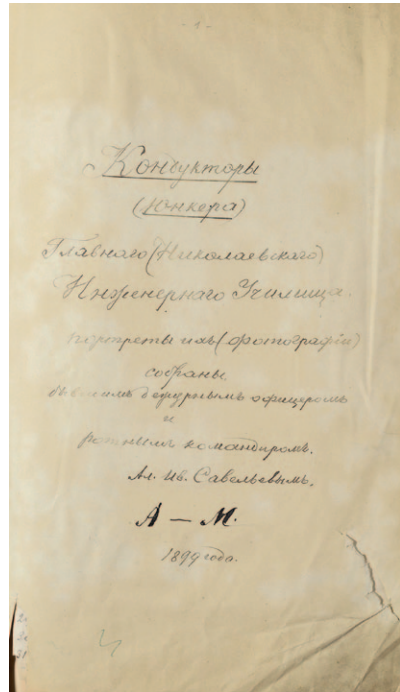 - 1 -
Кондукторы
(Юнкера)
Главнаго (Николаевскаго)
Инженернаго Училища.
Портреты ихъ (фотографіи)
собраны
бывшимъ дежурнымъ офицеромъ
и
ротнымъ командиромъ.
Ал. Ив. Савельевымъ.
А — М.
1899 года.